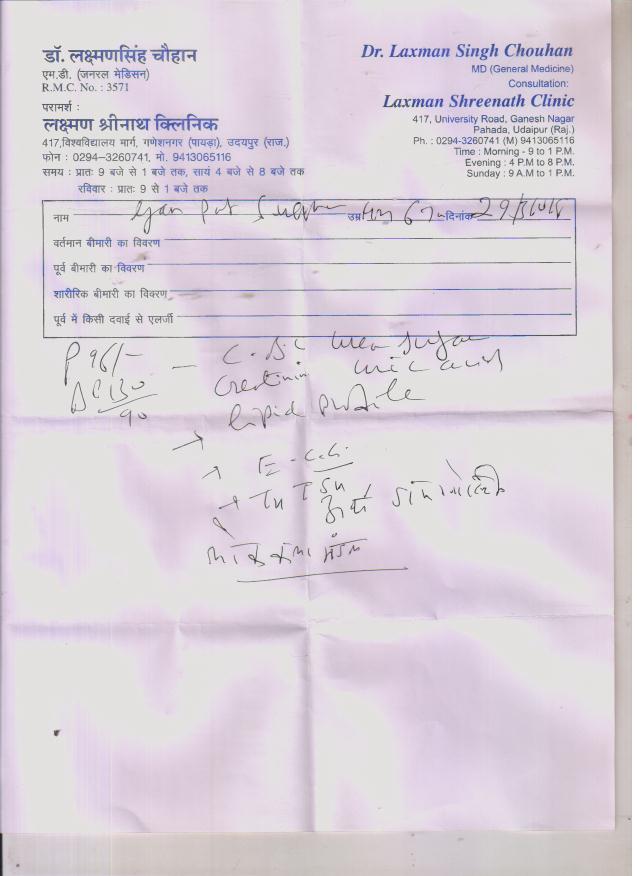 डॉ. लक्ष्मणसिंह चौहान
एम.डी. (जनरल मेडिसन)
R.M.C. No. : 3571
परामर्श :
लक्ष्मण श्रीनाथ क्लिनिक
417,विश्वविद्यालय मार्ग, गणेशनगर (पायड़ा), उदयपुर (राज.)
फोन : 0294–3260741, मो. 9413065116
समय : प्रातः 9 बजे से 1 बजे तक, सायं 4 बजे से 8 बजे तक
रविवार : प्रातः 9 से 1 बजे तक
Dr. Laxman Singh Chouhan
MD (General Medicine)
Consultation:
Laxman Shreenath Clinic
417, University Road, Ganesh Nagar
Pahada, Udaipur (Raj.)
Ph. : 0294-3260741 (M) 9413065116
Time : Morning - 9 to 1 P.M.
Evening : 4 P.M to 8 P.M.
Sunday : 9 A.M to 1 P.M.
नाम उम्र दिनांक
वर्तमान बीमारी का विवरण
पूर्व बीमारी का विवरण
शारीरिक बीमारी का विवरण
पूर्व में किसी दवाई से एलर्जी
P 96/- C.B.C Urea Sugar
130/90 uric acid
lipid profile
E.C.G.
TSH